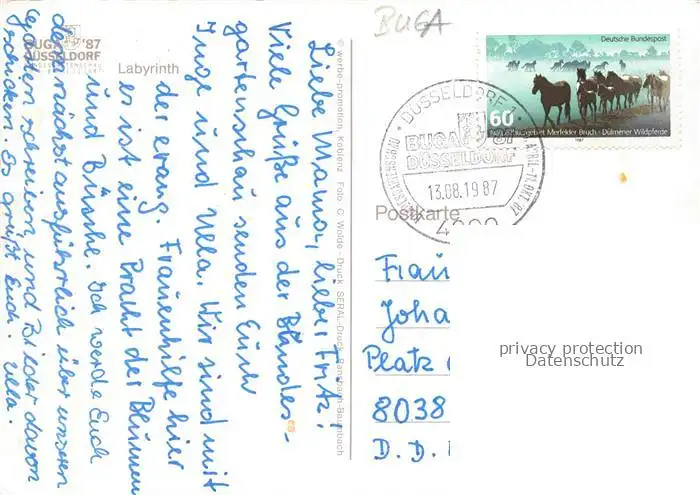 BUGA
BUGA '87
DÜSSELDORF
Labyrinth
Liebe Mama, lieber Fritz!
Viele Grüße aus der Bundes-
gartenschau senden Euch
Inge und Ulla. Wir sind mit
der evang. Frauenhilfe hier
es ist eine Pracht der Blumen
und Büsche. Ich werde Euch
demnächst ausführlich über unseren
Garten schreiben und Bilder davon
schicken. Es grüßt Euch. Ulla.
© werbe-promotion, Koblenz Foto C. Wolde - Druck SERAL-Druck Ransbach-Baumbach
Deutsche Bundespost
60
Naturschutzgebiet Merfelder Bruch - Dülmener Wildpferde
1987
DÜSSELDORF 1
BUGA 87
DÜSSELDORF
13.08.1987
Postkarte
Frau
Joha
Platz
8038
D.D.
privacy protection
Datenschutz